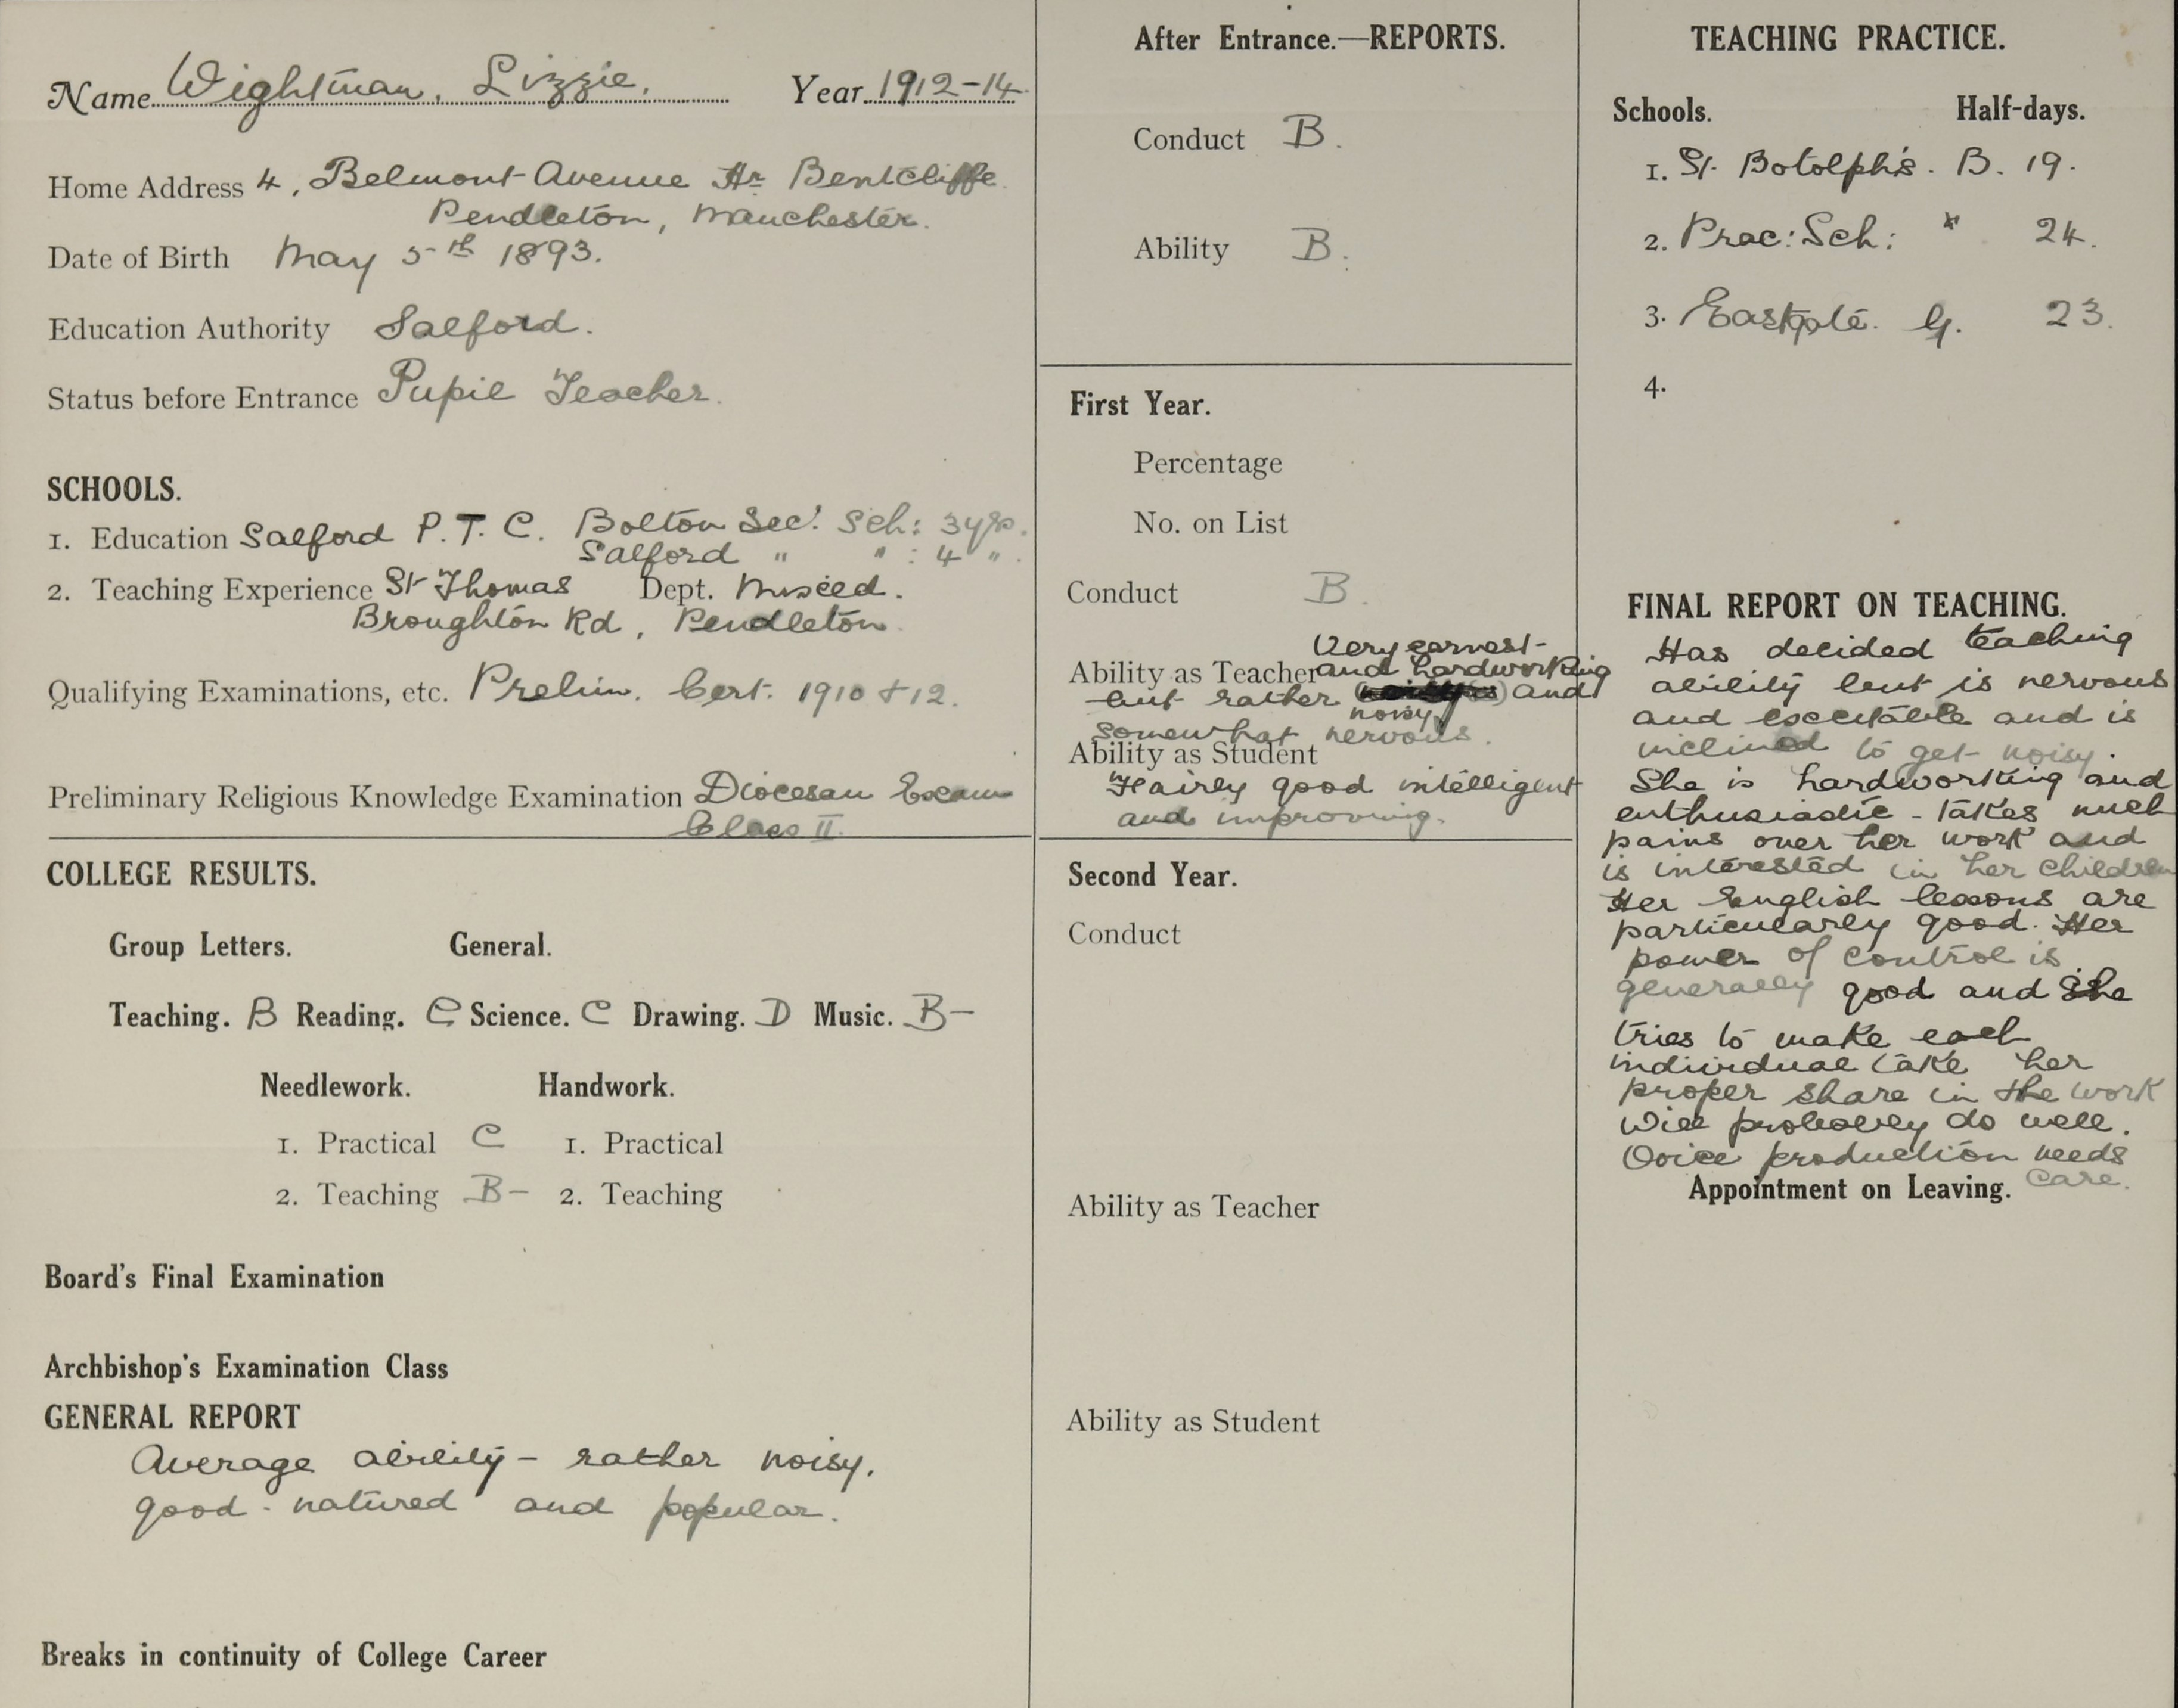 Name Wightman, Lizzie. Year 1912-14
Home Address 4, Belmont Avenue Hr Bentcliffe
Pendleton, Manchester.
Date of Birth May 5th 1893.
Education Authority Salford.
Status before Entrance Pupil Teacher.
SCHOOLS.
1. Education Salford P. T. C. Bolton Sec: Sch: 3 yrs.
Salford " " : 4 ".
2. Teaching Experience St Thomas Dept. Mixed.
Broughton Rd, Pendleton.
Qualifying Examinations, etc. Prelim. Cert. 1910 + 12.
Preliminary Religious Knowledge Examination Diocesan Exam
Class II.
COLLEGE RESULTS.
Group Letters. General.
Teaching. B Reading. C Science. C Drawing. D Music. B-
Needlework. Handwork.
1. Practical C 1. Practical
2. Teaching B- 2. Teaching
Board's Final Examination
Archbishop's Examination Class
GENERAL REPORT
Average ability - rather noisy.
good-natured and popular.
Breaks in continuity of College Career
After Entrance.—REPORTS.
Conduct B.
Ability B.
First Year.
Percentage
No. on List
Conduct B.
Very earnest
Ability as Teacher and hardworking
but rather and
noisy
somewhat nervous.
Ability as Student
Fairly good intelligent
and improving.
Second Year.
Conduct
Ability as Teacher
Ability as Student
TEACHING PRACTICE.
Schools. Half-days.
1. St. Botolph's. B. 19.
2. Prac: Sch: " 24.
3. Eastgate. G. 23.
4.
FINAL REPORT ON TEACHING.
Has decided teaching
ability but is nervous
and excitable and is
inclined to get noisy.
She is hardworking and
enthusiastic - takes much
pains over her work and
is interested in her children
Her English lessons are
particularly good. Her
power of control is
generally good and she
tries to make each
individual take her
proper share in the work
Will probably do well.
Voice production needs
care.
Appointment on Leaving.